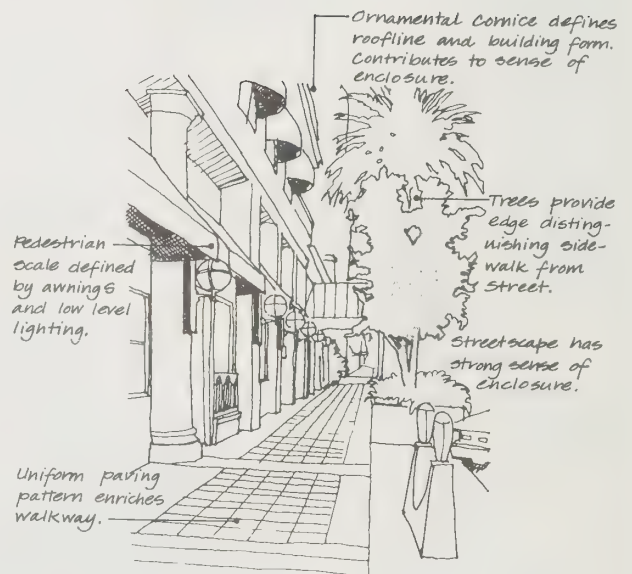 Ornamental Cornice defines
roofline and building form.
Contributes to sense of
enclosure.
Trees provide
edge disting-
uishing side-
walk from
Street.
Pedestrian
scale defined
by awnings
and low level
lighting.
Streetscape has
strong sense of
enclosure.
Uniform paving
pattern enriches
walkway.